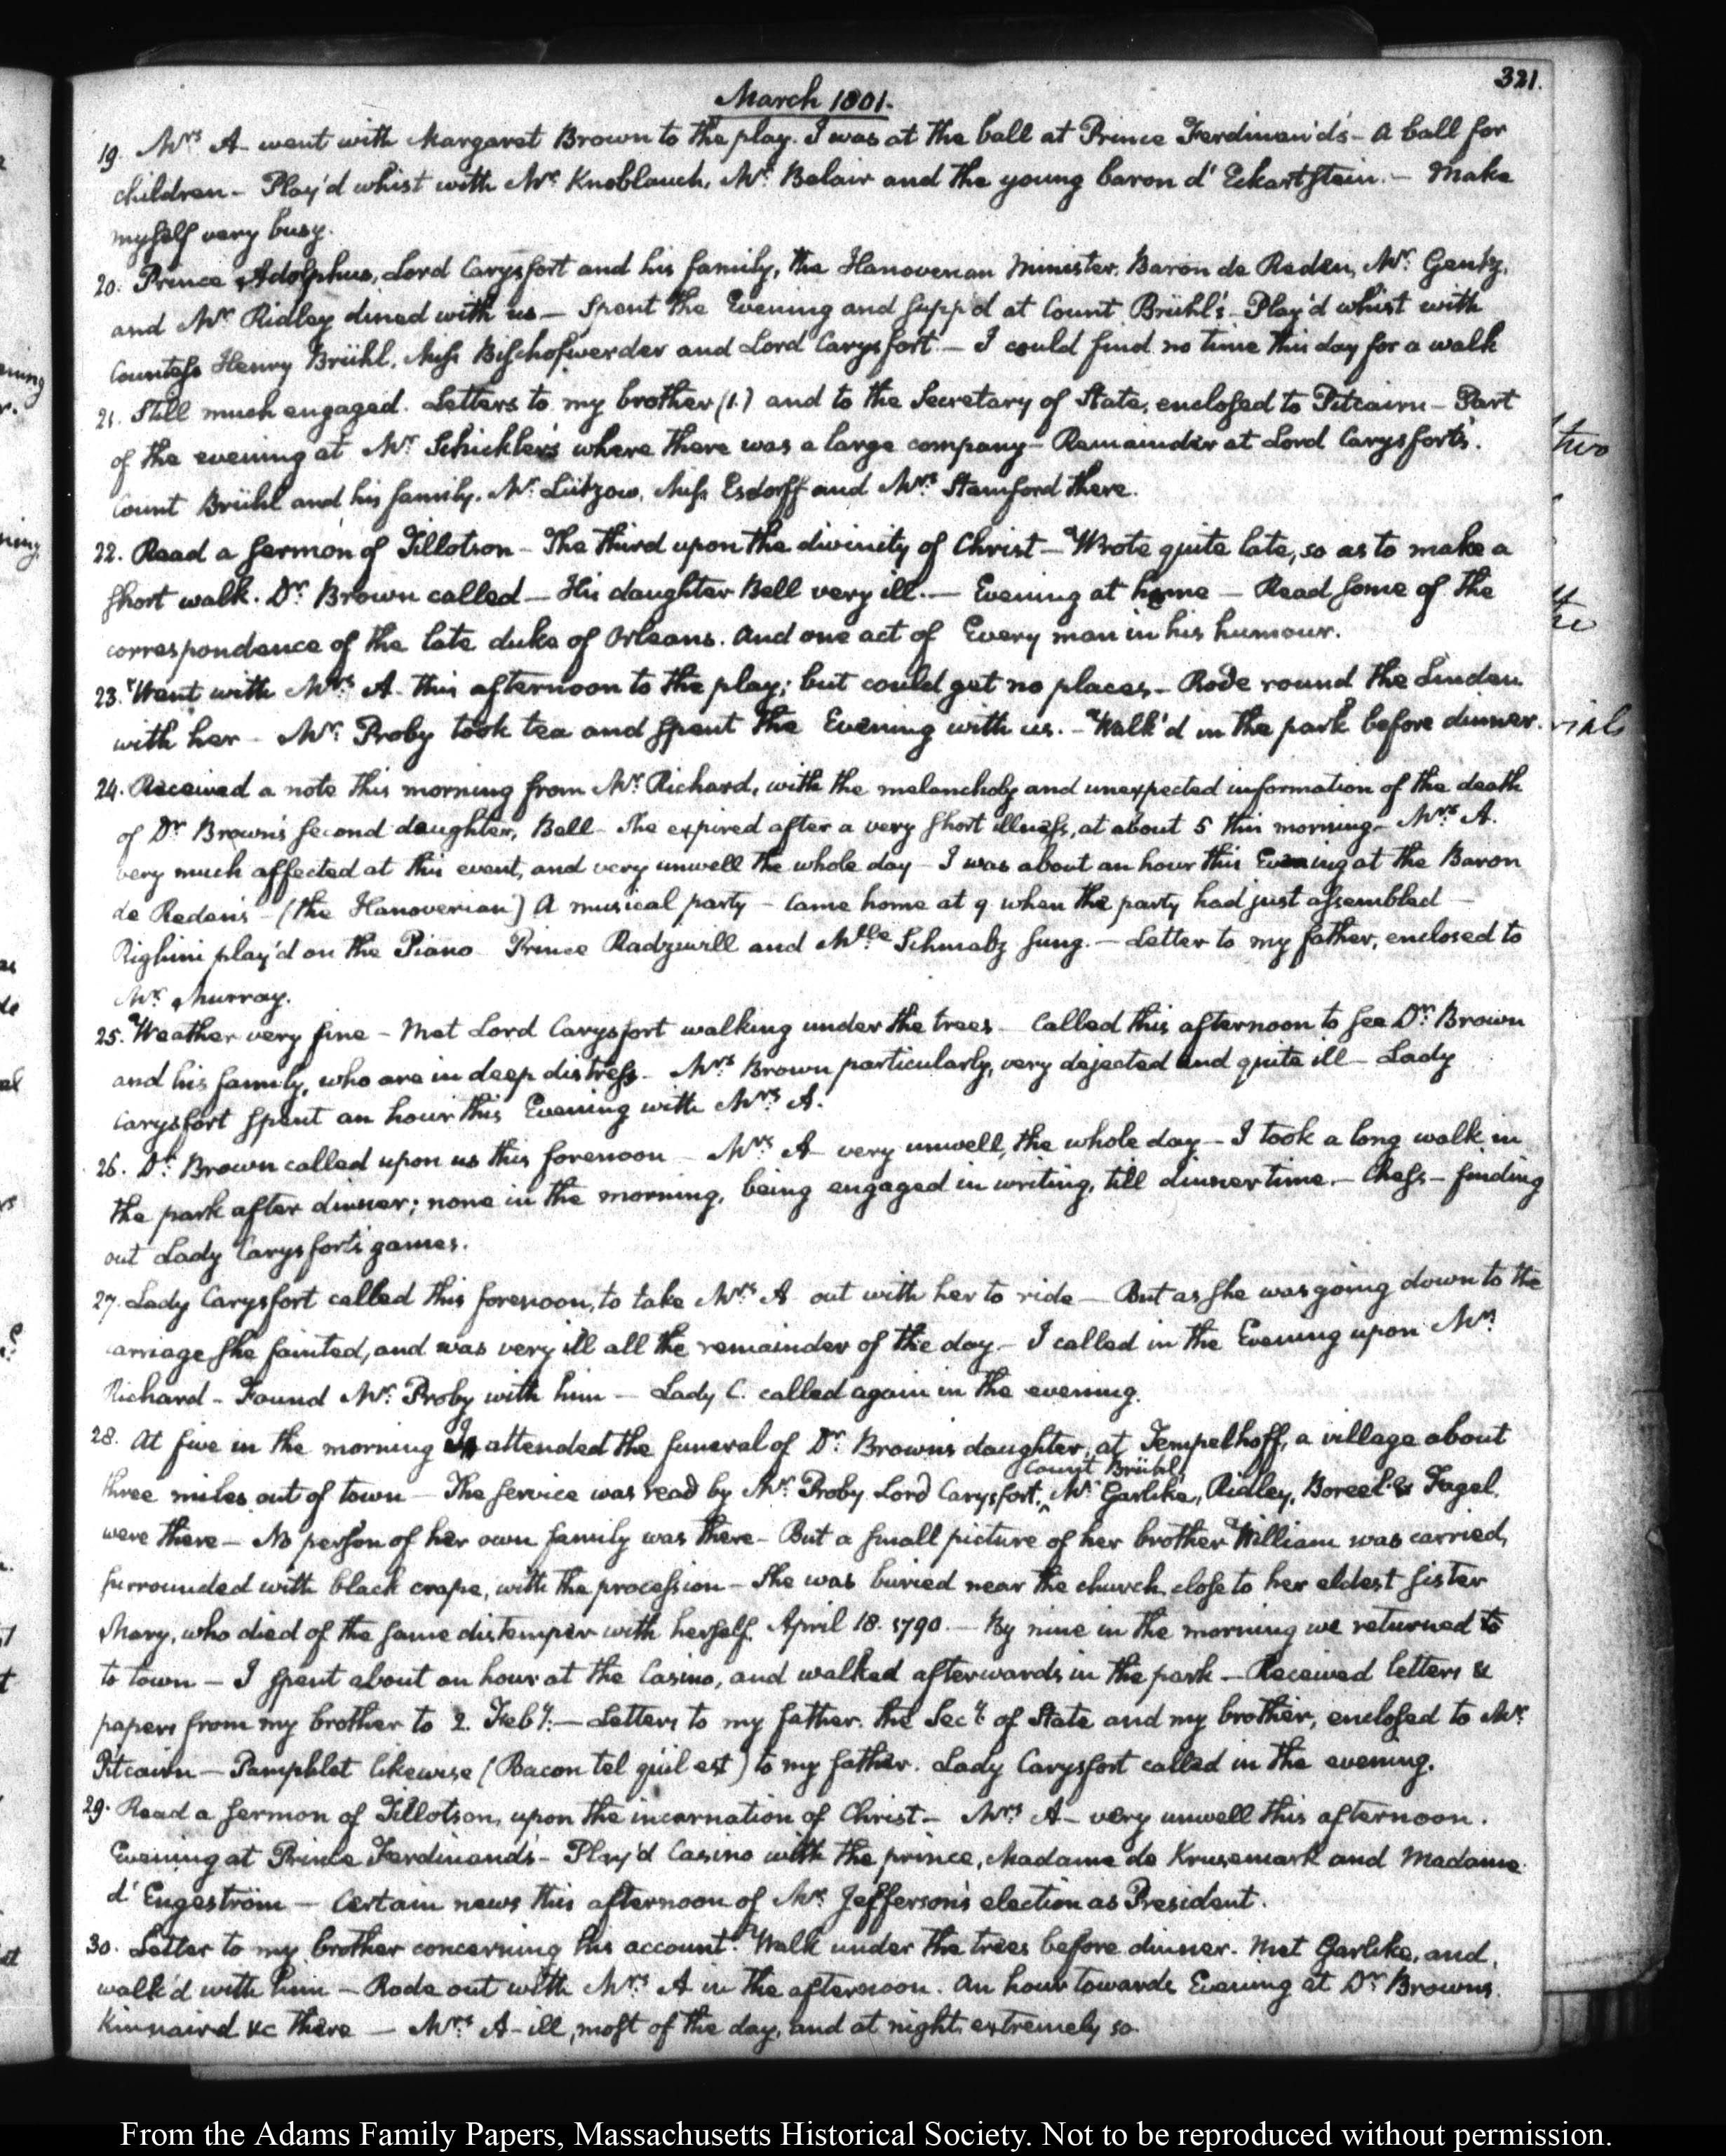 321.
March 1801.
19. Mrs A- went with Margaret Brown to the play. I was at the ball at Prince Ferdinand's - A ball for
children - Play'd whist with Mr Knoblauch, Mr Belair and the young baron d'Eckartstein. - Make
myself very busy.
20. Prince Adolphus, Lord Carysfort and his family, the Hanoverian Minister, Baron de Reden, Mr: Gentz,
and Mr Ridley dined with us - Spent the Evening and supp'd at Count Brühl's - Play'd whist with
Countess Henry Brühl, Miss Bischofswerder and Lord Carysfort - I could find no time this day for a walk
21. Still much engaged. Letters to my brother (1.) and to the Secretary of State, enclosed to Pitcairn - Part
of the evening at Mr Schickler's where there was a large company - Remainder at Lord Carysfort's.
Count Brühl and his family, Mr: Lützow, Miss Esdorff and Mrs Stamford there.
22. Read a sermon of Tillotson - The third upon the divinity of Christ - Wrote quite late, so as to make a
short walk. Dr: Brown called - His daughter Bell very ill. - Evening at home - Read some of the
correspondence of the late duke of Orleans. And one act of Every man in his humour.
23. Went with Mrs A- this afternoon to the play; but could get no places - Rode round the Linden
with her - Mr: Proby took tea and spent the Evening with us. - Walk'd in the park before dinner.
24. Received a note this morning from Mr: Richard, with the melancholy and unexpected information of the death
of Dr Brown's second daughter, Bell - She expired after a very short illness, at about 5 this morning - Mrs A.
very much affected at this event, and very unwell the whole day - I was about an hour this Evening at the Baron
de Reden's - (the Hanoverian) A musical party - Came home at 9 when the party had just assembled -
Righini play'd on the Piano Prince Radziwill and Mlle Schmalz sung. - Letter to my father, enclosed to
Mr: Murray.
25. Weather very fine - Met Lord Carysfort walking under the trees - Called this afternoon to see Dr: Brown
and his family, who are in deep distress - Mrs Brown particularly, very dejected and quite ill - Lady
Carysfort spent an hour this Evening with Mrs A.
26. Dr: Brown called upon us this forenoon - Mrs A- very unwell, the whole day - I took a long walk in
the park after dinner; none in the morning, being engaged in writing, till dinner time. - Chess - finding
out Lady Carysfort's games.
27. Lady Carysfort called this forenoon, to take Mrs A out with her to ride - But as she was going down to the
carriage she fainted, and was very ill all the remainder of the day - I called in the Evening upon Mr:
Richard - Found Mr: Proby with him - Lady C. called again in the evening.
28. At five in the morning I attended the funeral of Dr: Brown's daughter, at Tempelhoff, a village about
Count Brühl,
three miles out of town - The service was read by Mr: Proby Lord Carysfort, ^ Mr: Garlike, Ridley, Boreel & Fagel,
were there - No person of her own family was there - But a small picture of her brother William was carried,
surrounded with black crape, with the procession - She was buried near the church, close to her eldest sister
Mary, who died of the same distemper with herself, April 18. 1790. - By nine in the morning we returned to
to town - I spent about an hour at the Casino, and walked afterwards in the park - Received letters &
papers from my brother to 2. Feby: - Letters to my father, the Secy: of State and my brother, enclosed to Mr:
Pitcairn - Pamphlet likewise (Bacon tel qu'il est) to my father. Lady Carysfort called in the evening.
29. Read a sermon of Tillotson, upon the incarnation of Christ - Mrs A- very unwell this afternoon.
Evening at Prince Ferdinand's - Play'd Casino with the prince, Madame de Krusemark and Madame
d'Engeström - Certain news this afternoon of Mr: Jefferson's election as President.
30. Letter to my brother concerning his account. Walk under the trees before dinner. Met Garlike, and,
walk'd with him - Rode out with Mrs A in the afternoon. An hour towards Evening at Dr Browns.
Kinnaird &c there - Mrs A- ill, most of the day, and at night, extremely so
two
From the Adams Family Papers, Massachusetts Historical Society. Not to be reproduced without permission.